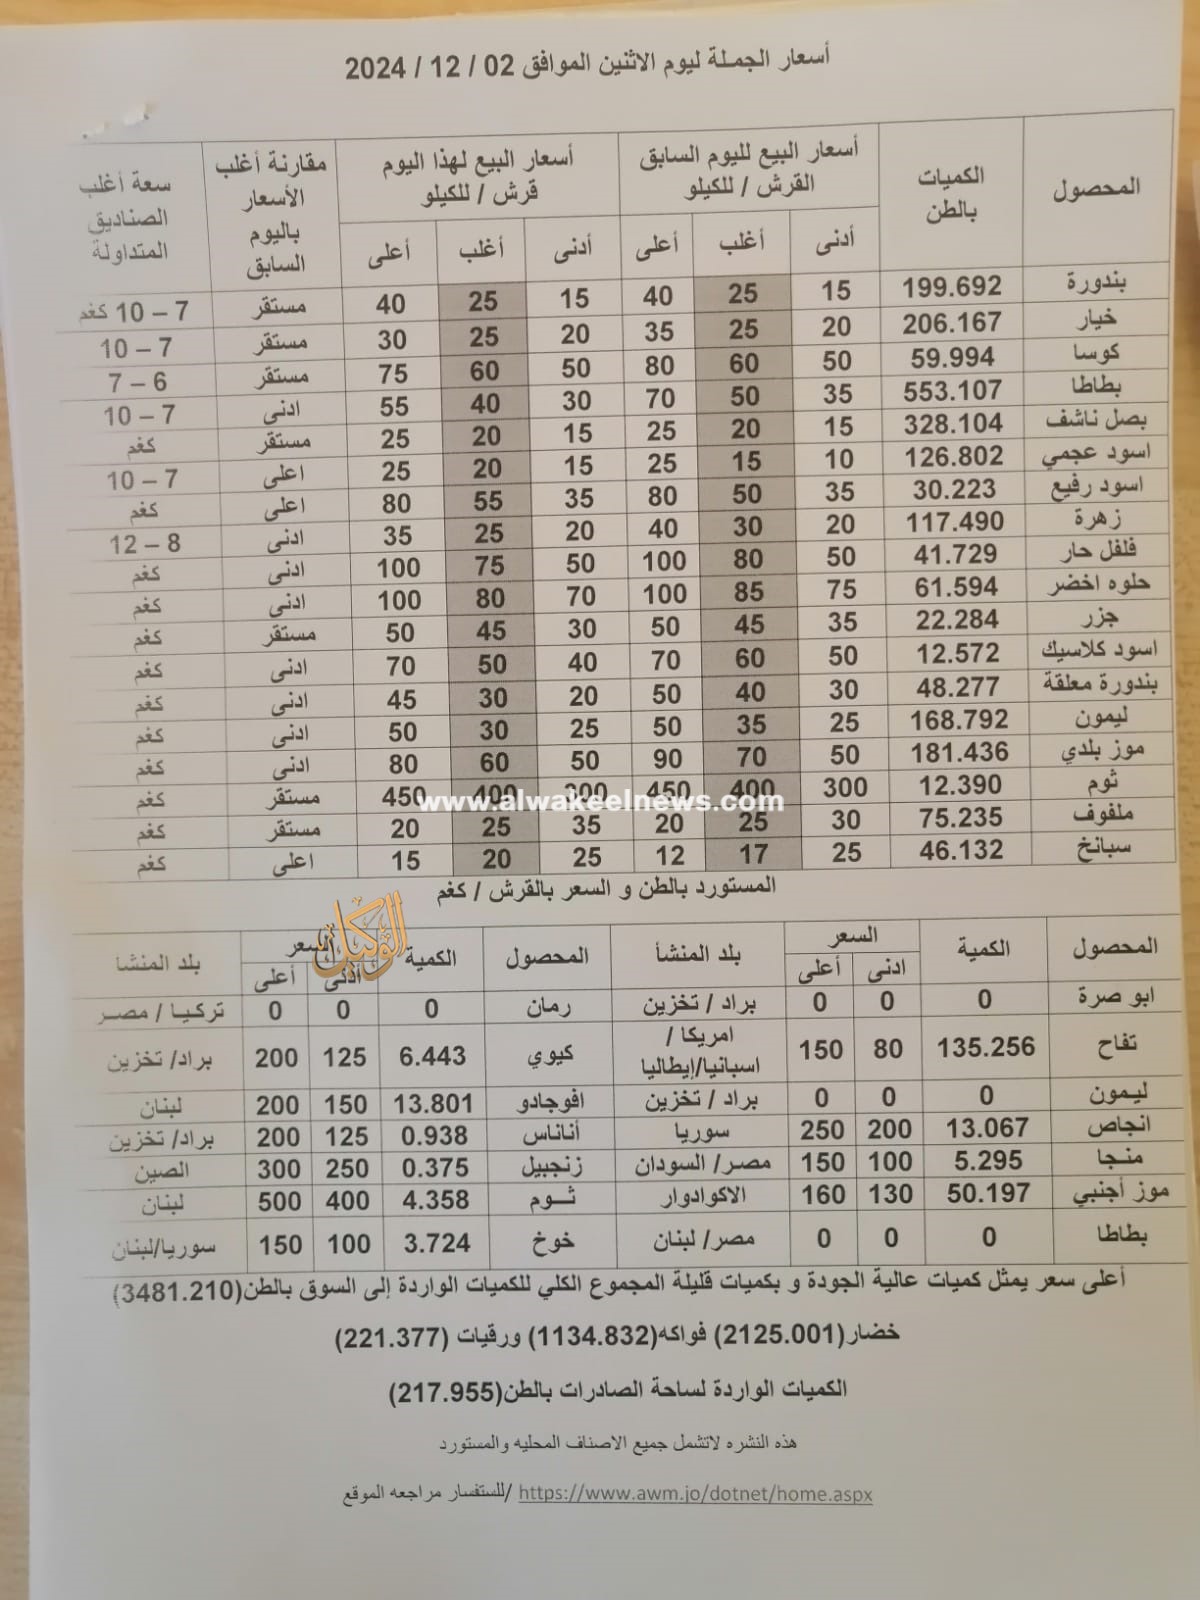 أسعار الجملة ليوم الاثنين الموافق 02 / 12 / 2024
المحصول الكميات بالطن أسعار البيع لليوم السابق القرش / للكيلو أسعار البيع لهذا اليوم قرش / للكيلو مقارنة أغلب الأسعار باليوم السابق سعة أغلب الصناديق المتداولة
أدنى أغلب أعلى أدنى أغلب أعلى
بندورة 199.692 15 25 40 15 25 40 مستقر 7 – 10 كغم
خيار 206.167 20 25 35 20 25 30 مستقر 7 – 10
كوسا 59.994 50 60 80 50 60 75 مستقر 6 – 7
بطاطا 553.107 35 50 70 30 40 55 ادنى 7 – 10
بصل ناشف 328.104 15 20 25 15 20 25 مستقر كغم
اسود عجمي 126.802 10 15 25 15 20 25 اعلى 7 – 10
اسود رفيع 30.223 35 50 80 35 55 80 اعلى كغم
زهرة 117.490 20 30 40 20 25 35 ادنى 8 – 12
فلفل حار 41.729 50 80 100 50 75 100 ادنى كغم
حلوه اخضر 61.594 75 85 100 70 80 100 ادنى كغم
جزر 22.284 35 45 50 30 45 50 مستقر كغم
اسود كلاسيك 12.572 50 60 70 40 50 70 ادنى كغم
بندورة معلقة 48.277 30 40 50 20 30 45 ادنى كغم
ليمون 168.792 25 35 50 25 30 50 ادنى كغم
موز بلدي 181.436 50 70 90 50 60 80 ادنى كغم
ثوم 12.390 300 400 450 300 400 450 مستقر كغم
www.alwakeelnews.com
ملفوف 75.235 30 25 20 35 25 20 مستقر كغم
سبانخ 46.132 25 17 12 25 20 15 اعلى كغم
المستورد بالطن و السعر بالقرش / كغم
الوكيل
المحصول الكمية السعر بلد المنشأ المحصول الكمية السعر بلد المنشا
ادنى أعلى أدنى أعلى
ابو صرة 0 0 0 براد / تخزين رمان 0 0 0 تركيا / مصر
تفاح 135.256 80 150 امريكا / اسبانيا/إيطاليا كيوي 6.443 125 200 براد/ تخزين
ليمون 0 0 0 براد / تخزين افوجادو 13.801 150 200 لبنان
انجاص 13.067 200 250 سوريا أناناس 0.938 125 200 براد/ تخزين
منجا 5.295 100 150 مصر/ السودان زنجبيل 0.375 250 300 الصين
موز أجنبي 50.197 130 160 الاكوادوار ثوم 4.358 400 500 لبنان
بطاطا 0 0 0 مصر/ لبنان خوخ 3.724 100 150 سوريا/لبنان
أعلى سعر يمثل كميات عالية الجودة و بكميات قليلة المجموع الكلي للكميات الواردة إلى السوق بالطن(3481.210)
خضار(2125.001) فواكه(1134.832) ورقيات (221.377)
الكميات الواردة لساحة الصادرات بالطن(217.955)
هذه النشره لاتشمل جميع الاصناف المحليه والمستورد
للستفسار مراجعه الموقع/ https://www.awm.jo/dotnet/home.aspx